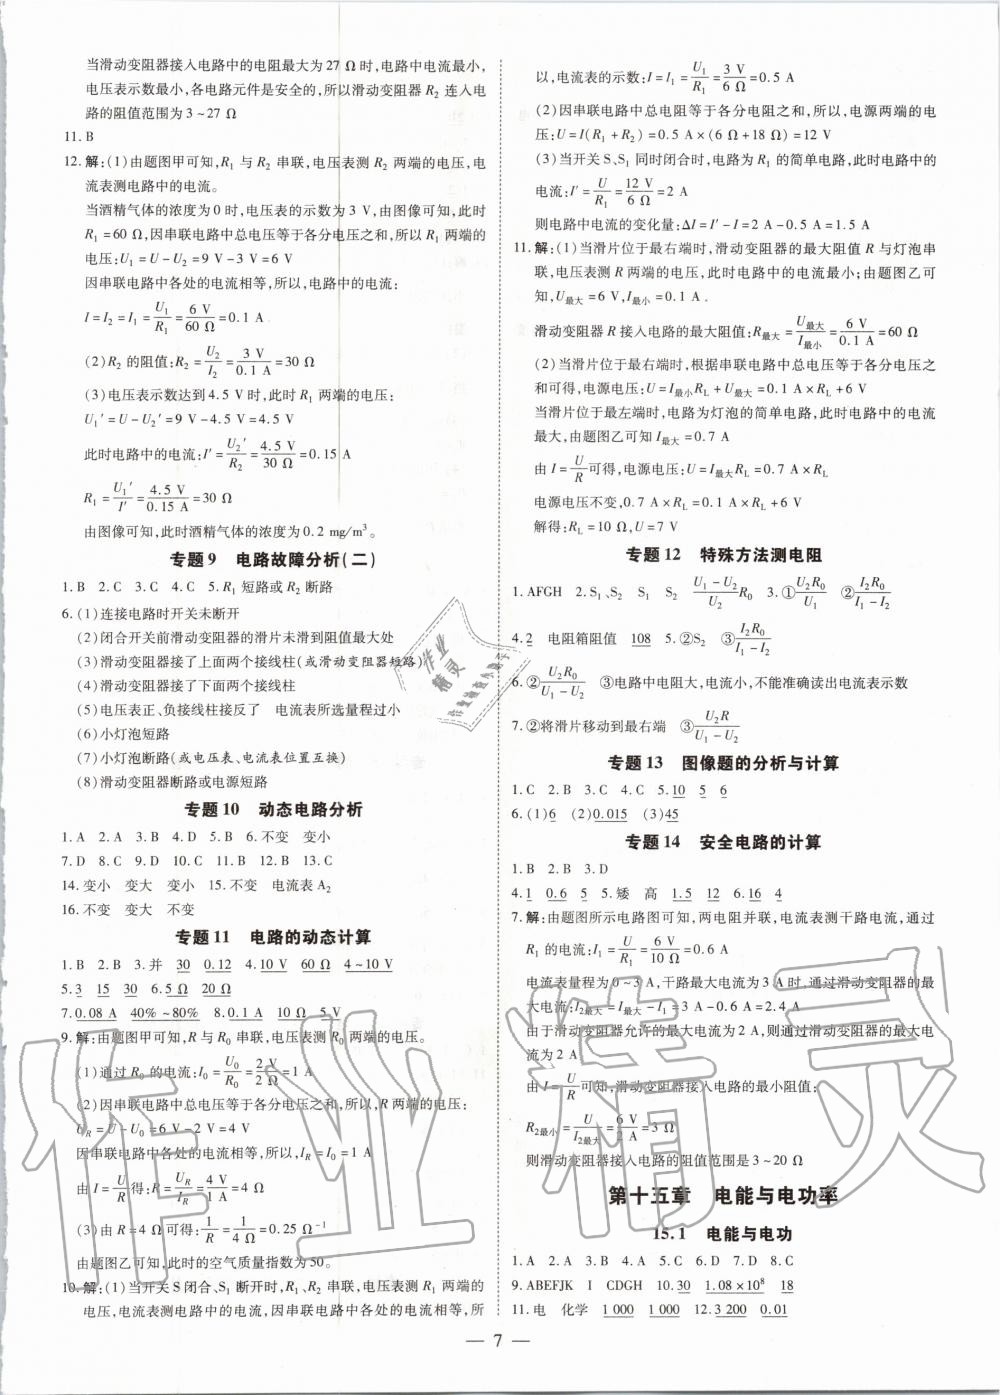 当滑动变阻器接入电路中的电阻最大为27 Ω时,电路中电流最小,
电压表示数最小,各电路元件是安全的,所以滑动变阻器R₂连入电
路的阻值范围为3~27 Ω
11.B
12.解:(1)由题图甲可知,R₁与R₂串联,电压表测R₂两端的电压,电
流表测电路中的电流。
当酒精气体的浓度为0时,电压表的示数为3 V,由图像可知,此时
R₁=60 Ω,因串联电路中总电压等于各分电压之和,所以R₁两端的
电压:U₁=U-U₂=9 V-3 V=6 V
因串联电路中各处的电流相等,所以,电路中的电流:
I=I₂=I₁=U₁/R₁=6 V/60 Ω=0.1 A
(2)R₂的阻值:R₂=U₂/I₂=3 V/0.1 A=30 Ω
(3)电压表示数达到4.5 V时,此时R₁两端的电压:
U₁′=U-U₂′=9 V-4.5 V=4.5 V
此时电路中的电流:I′=U₂′/R₂=4.5 V/30 Ω=0.15 A
R₁=U₁′/I′=4.5 V/0.15 A=30 Ω
由图像可知,此时酒精气体的浓度为0.2 mg/m³。
专题9 电路故障分析(二)
1.B 2.C 3.C 4.C 5.R₁短路或R₂断路
6.(1)连接电路时开关未断开
(2)闭合开关前滑动变阻器的滑片未滑到阻值最大处
(3)滑动变阻器接了上面两个接线柱(或滑动变阻器短路)
(4)滑动变阻器接了下面两个接线柱
(5)电压表正、负接线柱接反了 电流表所选量程过小
(6)小灯泡短路
(7)小灯泡断路(或电压表、电流表位置互换)
(8)滑动变阻器断路或电源短路
专题10 动态电路分析
1.A 2.A 3.B 4.D 5.B 6.不变 变小
7.D 8.C 9.D 10.C 11.B 12.B 13.C
14.变小 变大 变小 15.不变 电流表A₂
16.不变 变大 不变
专题11 电路的动态计算
1.B 2.B 3.并 30 0.12 4.10 V 60 Ω 4~10 V
5.3 15 30 6.5 Ω 20 Ω
7.0.08 A 40%~80% 8.0.1 A 10 Ω 5 V
9.解:由题图甲可知,R与R₀串联,电压表测R₀两端的电压。
(1)通过R₀的电流:I₀=U₀/R₀=2 V/2 Ω=1 A
(2)因串联电路中总电压等于各分电压之和,所以,R两端的电压:
U_R=U-U₀=6 V-2 V=4 V
因串联电路中各处的电流相等,所以,I_R=I₀=1 A
由I=U/R得:R=U_R/I_R=4 V/1 A=4 Ω
(3)由R=4 Ω可得:1/R=1/4 Ω=0.25 Ω⁻¹
由题图乙可知,此时的空气质量指数为50。
10.解:(1)当开关S闭合、S₁断开时,R₁、R₂串联,电压表测R₁两端的
电压,电流表测电路中的电流,因串联电路中各处的电流相等,所
以,电流表的示数:I=I₁=U₁/R₁=3 V/6 Ω=0.5 A
(2)因串联电路中总电阻等于各分电阻之和,所以,电源两端的电
压:U=I(R₁+R₂)=0.5 A×(6 Ω+18 Ω)=12 V
(3)当开关S、S₁同时闭合时,电路为R₁的简单电路,此时电路中的
电流:I′=U/R₁=12 V/6 Ω=2 A
则电路中电流的变化量:ΔI=I′-I=2 A-0.5 A=1.5 A
11.解:(1)当滑片位于最右端时,滑动变阻器的最大阻值R与灯泡串
联,电压表测R两端的电压,此时电路中的电流最小;由题图乙可
知,U最大=6 V,I最小=0.1 A.
滑动变阻器R接入电路的最大阻值:R最大=U最大/I最小=6 V/0.1 A=60 Ω
(2)当滑片位于最右端时,根据串联电路中总电压等于各分电压之
和可得,电源电压:U=I最小R_L+U最大=0.1 A×R_L+6 V
当滑片位于最左端时,电路为灯泡的简单电路,此时电路中的电流
最大,由题图乙可知I最大=0.7 A
由I=U/R可得,电源电压:U=I最大R_L=0.7 A×R_L
电源电压不变,0.7 A×R_L=0.1 A×R_L+6 V
解得:R_L=10 Ω,U=7 V
专题12 特殊方法测电阻
1.AFGH 2.S₁、S₂ S₁ S₂ (U₁-U₂)/U₂ R₀ 3.①U₂R₀/U₁ ②I₂R₀/(I₁-I₂)
4.2 电阻箱阻值 108 5.②S₂ ③I₂R₀/(I₁-I₂)
6.②U₂R₀/(U₁-U₂) ③电路中电阻大,电流小,不能准确读出电流表示数
7.②将滑片移动到最右端 ③U₂R/(U₁-U₂)
专题13 图像题的分析与计算
1.C 2.B 3.C 4.C 5.10 5 6
6.(1)6 (2)0.015 (3)45
专题14 安全电路的计算
1.B 2.B 3.D
4.1 0.6 5 5.矮 高 1.5 12 6.16 4
7.解:由题图所示电路图可知,两电阻并联,电流表测干路电流,通过
R₁的电流:I₁=U/R₁=6 V/10 Ω=0.6 A
电流表量程为0~3 A,干路最大电流为3 A时,通过滑动变阻器的最
大电流:I₂最大=I最大-I₁=3 A-0.6 A=2.4 A
由于滑动变阻器允许的最大电流为2 A,则通过滑动变阻器的最大电
流为2 A
由I=U/R可知,滑动变阻器接入电路的最小阻值:
R₂最小=U/I₂最大=6 V/2 A=3 Ω
则滑动变阻器接入电路的阻值范围是3~20 Ω
第十五章 电能与电功率
15.1 电能与电功
1.A 2.A 3.B 4.C 5.B 6.D 7.D 8.C
9.ABEFJK I CDGH 10.30 1.08×10⁸ 18
11.电 化学 1 000 1 000 12.3 200 0.01
— 7 —
作业
精灵
作业精灵